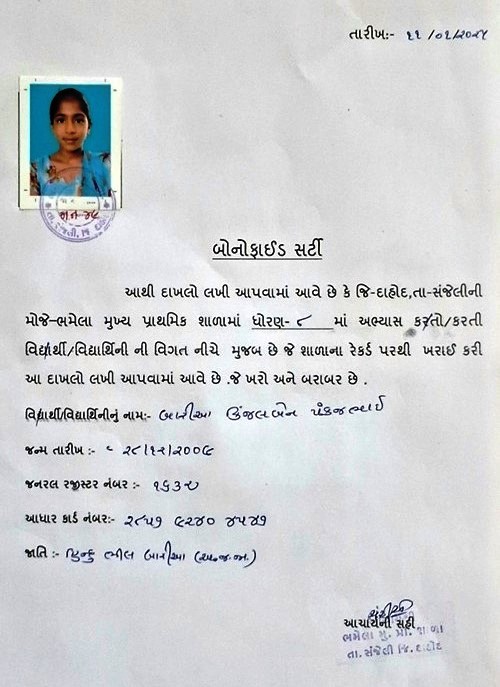 તારીખ:- ૧૧ /૦૨/૨૦૨૫
બોનોફાઈડ સર્ટી
આથી દાખલો લખી આપવામાં આવે છે કે જિ-દાહોદ,તા-સંજેલીની
મોજે-ભમેલા મુખ્ય પ્રાથમિક શાળામાં ધોરણ- ૮ માં અભ્યાસ કરતો/કરતી
વિદ્યાર્થી/વિદ્યાર્થિની ની વિગત નીચે મુજબ છે જે શાળાના રેકર્ડ પરથી ખરાઈ કરી
આ દાખલો લખી આપવામાં આવે છે .જે ખરો અને બરાબર છે .
વિદ્યાર્થી/વિદ્યાર્થિનીનું નામ:- બારીઆ ઉંજલબેન પંકજભાઈ
જન્મ તારીખ :- ૨૮/૧૨/૨૦૦૯
જનરલ રજીસ્ટર નંબર :- ૧૬૩૨
આધાર કાર્ડ નંબર:- ૨૮૫૧ ૯૨૪૦ ૪૫૪૧
જાતિ :- હિન્દુ ભીલ બારીઆ (અ.જ.જા.)
આચાર્યની સહી
ભમેલા મુ. પ્રા. શાળા
તા. સંજેલી જિ. દાહોદ